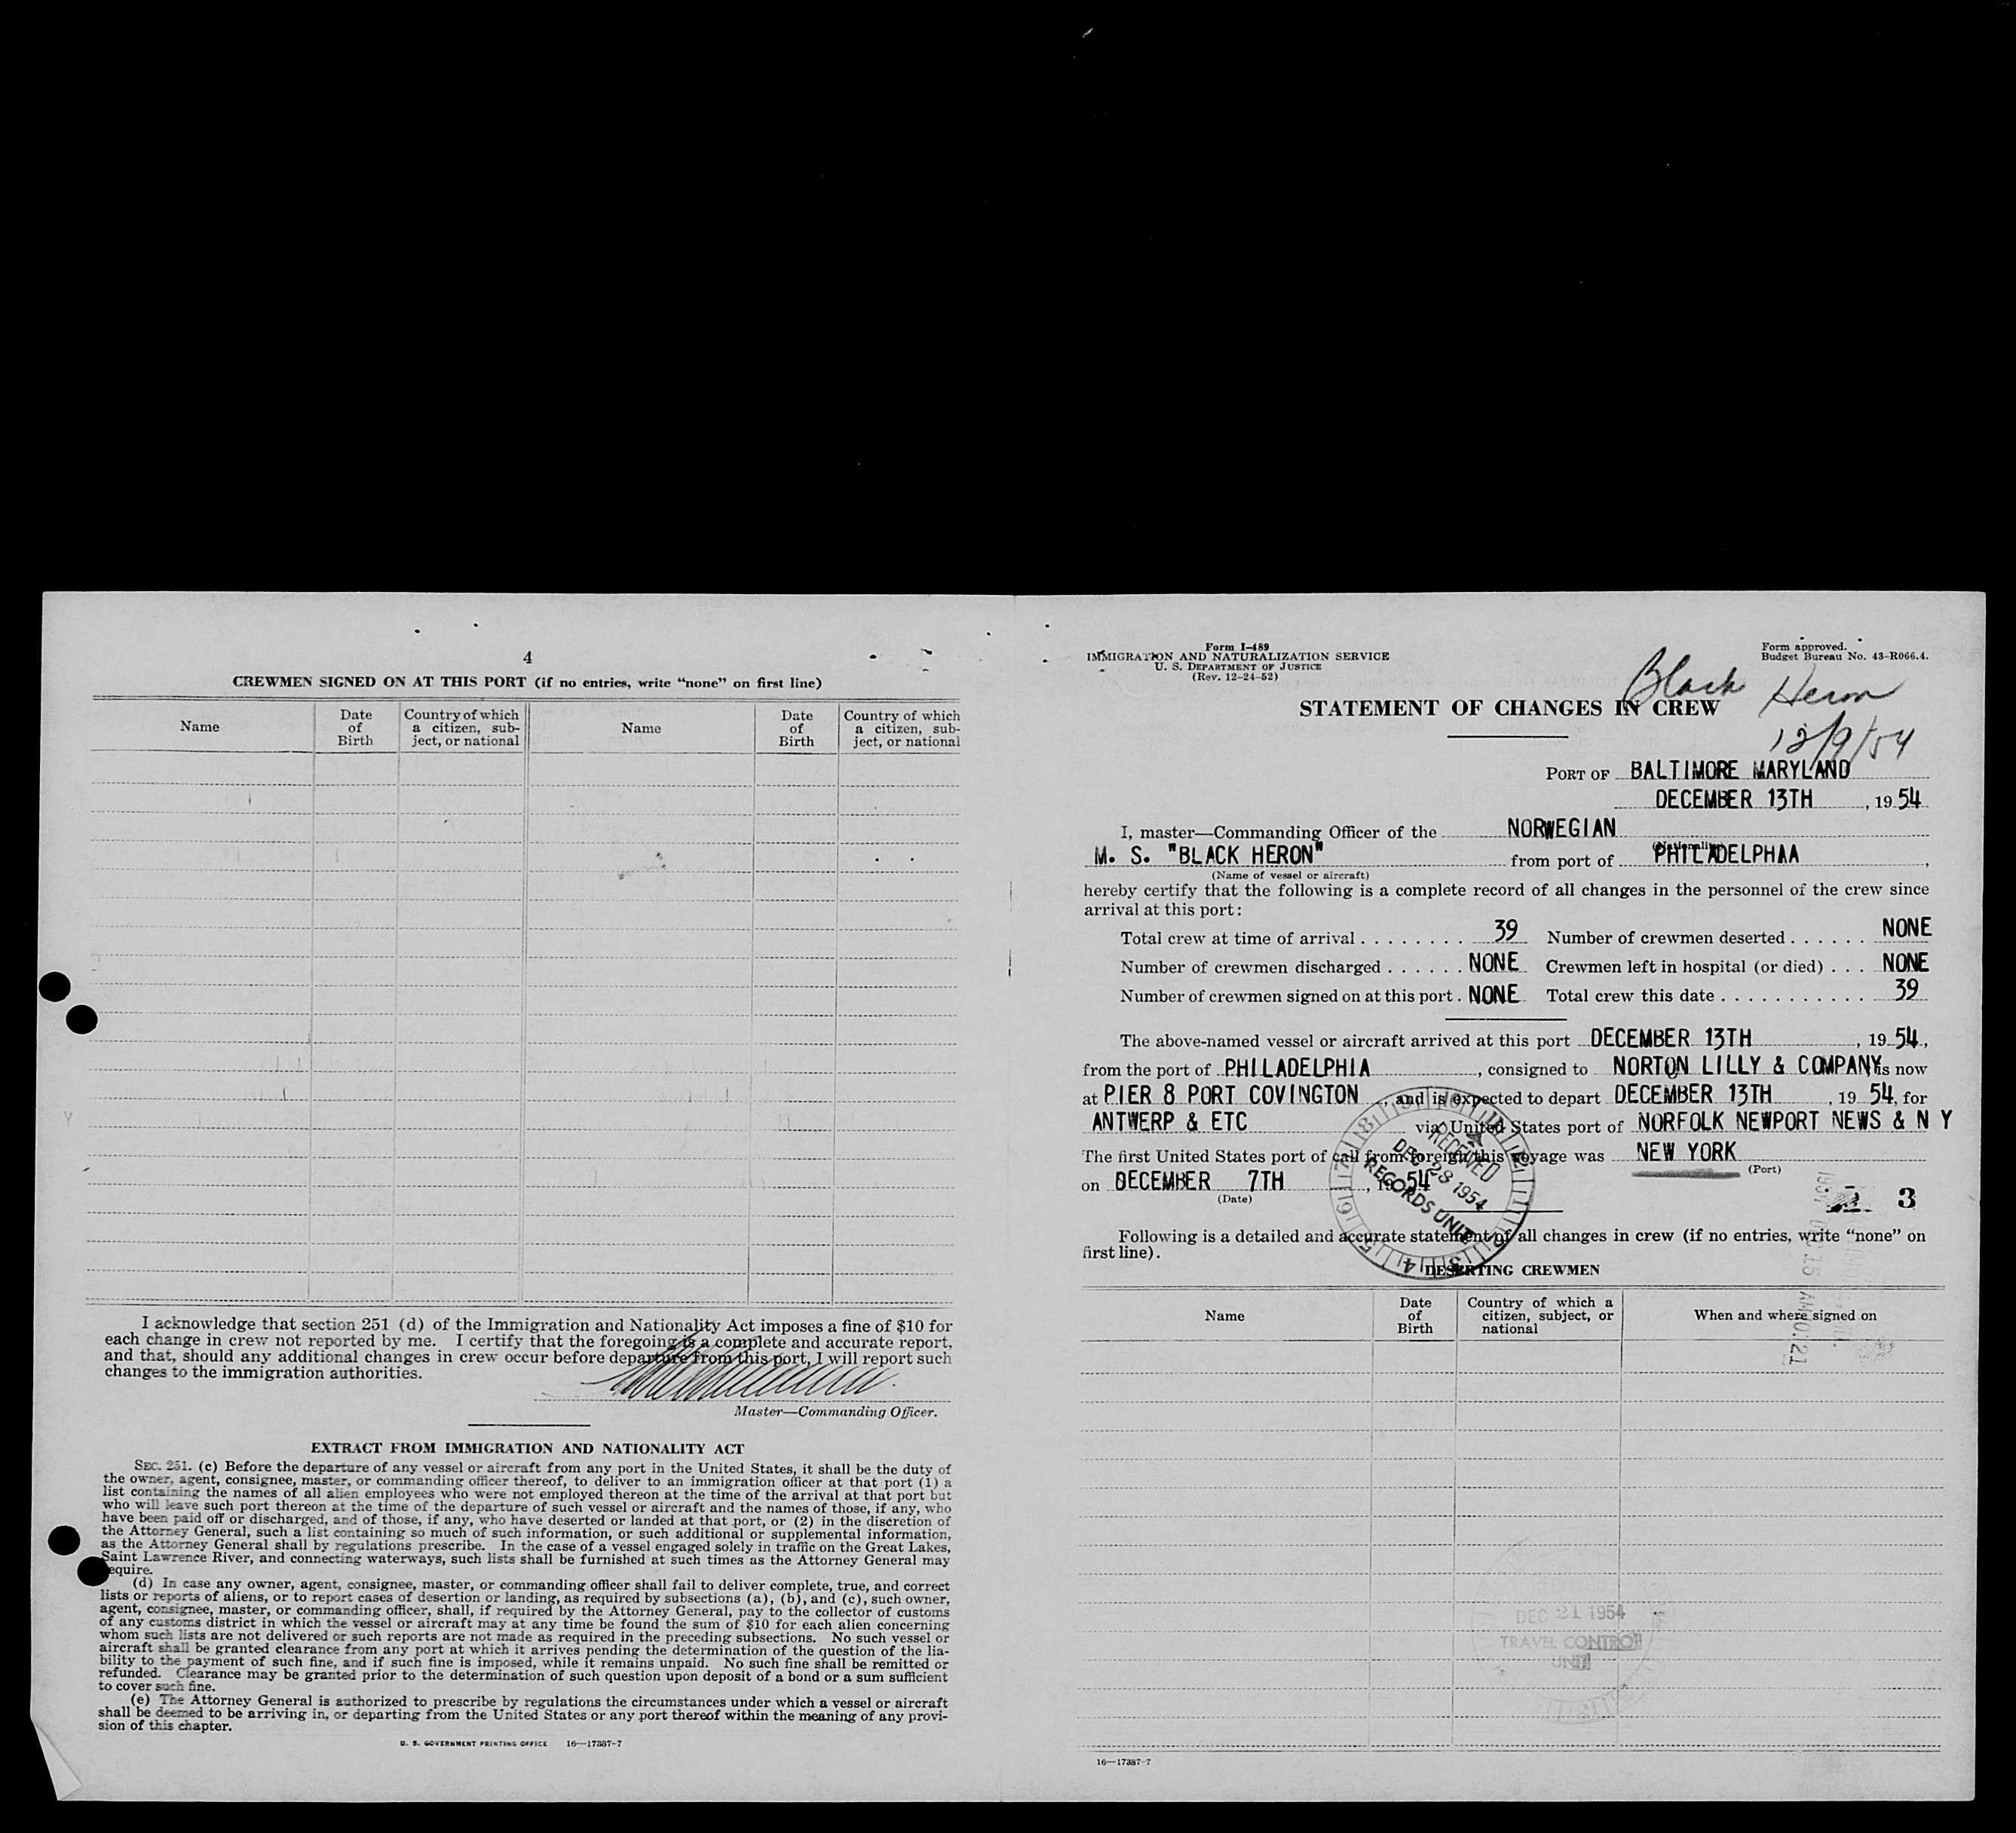 4
CREWMEN SIGNED ON AT THIS PORT (if no entries, write “none” on first line)
Name
Date of Birth
Country of which a citizen, sub-ject, or national
Name
Date of Birth
Country of which a citizen, sub-ject, or national
I acknowledge that section 251 (d) of the Immigration and Nationality Act imposes a fine of $10 for
each change in crew not reported by me. I certify that the foregoing is a complete and accurate report,
and that, should any additional changes in crew occur before departure from this port, I will report such
changes to the immigration authorities.
Master—Commanding Officer.
EXTRACT FROM IMMIGRATION AND NATIONALITY ACT
SEC. 251. (c) Before the departure of any vessel or aircraft from any port in the United States, it shall be the duty of
the owner, agent, consignee, master, or commanding officer thereof, to deliver to an immigration officer at that port (1) a
list containing the names of all alien employees who were not employed thereon at the time of the arrival at that port but
who will leave such port thereon at the time of the departure of such vessel or aircraft and the names of those, if any, who
have been paid off or discharged, and of those, if any, who have deserted or landed at that port, or (2) in the discretion of
the Attorney General, such a list containing so much of such information, or such additional or supplemental information,
as the Attorney General shall by regulations prescribe. In the case of a vessel engaged solely in traffic on the Great Lakes,
Saint Lawrence River, and connecting waterways, such lists shall be furnished at such times as the Attorney General may
equire.
(d) In case any owner, agent, consignee, master, or commanding officer shall fail to deliver complete, true, and correct
lists or reports of aliens, or to report cases of desertion or landing, as required by subsections (a), (b), and (c), such owner,
agent, consignee, master, or commanding officer, shall, if required by the Attorney General, pay to the collector of customs
of any customs district in which the vessel or aircraft may at any time be found the sum of $10 for each alien concerning
whom such lists are not delivered or such reports are not made as required in the preceding subsections. No such vessel or
aircraft shall be granted clearance from any port at which it arrives pending the determination of the question of the lia-
bility to the payment of such fine, and if such fine is imposed, while it remains unpaid. No such fine shall be remitted or
refunded. Clearance may be granted prior to the determination of such question upon deposit of a bond or a sum sufficient
to cover such fine.
(e) The Attorney General is authorized to prescribe by regulations the circumstances under which a vessel or aircraft
shall be deemed to be arriving in, or departing from the United States or any port thereof within the meaning of any provi-
sion of this chapter.
U. S. GOVERNMENT PRINTING OFFICE 16—17387-7
Form I-489
IMMIGRATION AND NATURALIZATION SERVICE
U. S. DEPARTMENT OF JUSTICE
(Rev. 12-24-52)
Form approved.
Budget Bureau No. 43-R066.4.
Black Heron
STATEMENT OF CHANGES IN CREW
12/9/54
PORT OF BALTIMORE MARYLAND
DECEMBER 13TH, 19 54
I, master—Commanding Officer of the NORWEGIAN
(Nationality)
M. S. "BLACK HERON" from port of PHILADELPHAA,
(Name of vessel or aircraft)
hereby certify that the following is a complete record of all changes in the personnel of the crew since
arrival at this port:
Total crew at time of arrival . . . . . . . . 39 Number of crewmen deserted . . . . . . NONE
Number of crewmen discharged . . . . . . NONE Crewmen left in hospital (or died) . . . NONE
Number of crewmen signed on at this port . NONE Total crew this date . . . . . . . . . . . 39
The above-named vessel or aircraft arrived at this port DECEMBER 13TH, 19 54,
from the port of PHILADELPHIA, consigned to NORTON LILLY & COMPANY is now
at PIER 8 PORT COVINGTON, and is expected to depart DECEMBER 13TH, 19 54, for
ANTWERP & ETC via United States port of NORFOLK NEWPORT NEWS & N Y
The first United States port of call from foreign this voyage was NEW YORK
(Port)
on DECEMBER 7TH, 19 54
(Date)
RECEIVED
DEC 28 1954
RECORDS UNIT
3
Following is a detailed and accurate statement of all changes in crew (if no entries, write “none” on
first line).
DESERTING CREWMEN
Name
Date of Birth
Country of which a citizen, subject, or national
When and where signed on
DEC 21 1954
TRAVEL CONTROL
UNIT
16—17387-7